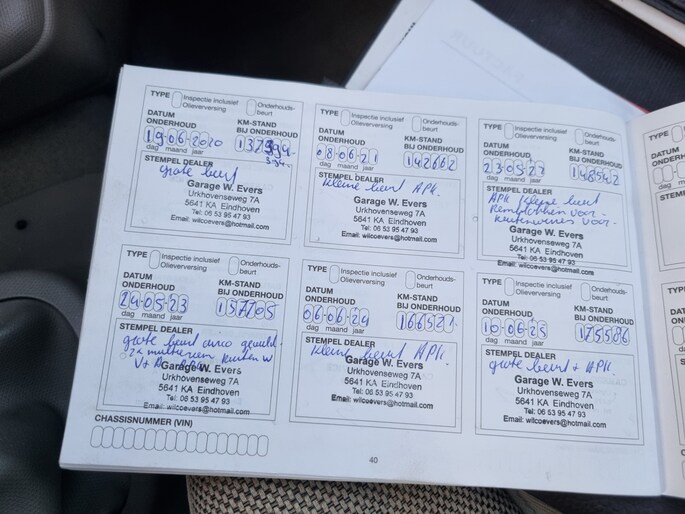 TYPE Inspectie inclusief Olieverversing Onderhouds-beurt
DATUM ONDERHOUD KM-STAND BIJ ONDERHOUD
19-06-2020
dag maand jaar
STEMPEL DEALER
grote beurt
Garage W. Evers
Urkhovenseweg 7A
5641 KA Eindhoven
Tel: 06 53 95 47 93
Email: wilcoevers@hotmail.com
TYPE Inspectie inclusief Olieverversing Onderhouds-beurt
DATUM ONDERHOUD KM-STAND BIJ ONDERHOUD
08-06-21 142662
dag maand jaar
STEMPEL DEALER
kleine beurt APK.
Garage W. Evers
Urkhovenseweg 7A
5641 KA Eindhoven
Tel: 06 53 95 47 93
Email: wilcoevers@hotmail.com
TYPE Inspectie inclusief Olieverversing Onderhouds-beurt
DATUM ONDERHOUD KM-STAND BIJ ONDERHOUD
148542
dag maand jaar
STEMPEL DEALER
APK kleine beurt
Remblokken voor-
voor-
Garage W. Evers
Urkhovenseweg 7A
5641 KA Eindhoven
Tel: 06 53 95 47 93
Email: wilcoevers@hotmail.com
TYPE Inspectie inclusief Olieverversing Onderhouds-beurt
DATUM ONDERHOUD KM-STAND BIJ ONDERHOUD
24-05-23 157205
dag maand jaar
STEMPEL DEALER
grote beurt airco gevuld.
2x
V+A
Garage W. Evers
Urkhovenseweg 7A
5641 KA Eindhoven
Tel: 06 53 95 47 93
Email: wilcoevers@hotmail.com
TYPE Inspectie inclusief Olieverversing Onderhouds-beurt
DATUM ONDERHOUD KM-STAND BIJ ONDERHOUD
06-06-24
dag maand jaar
STEMPEL DEALER
kleine beurt APK.
Garage W. Evers
Urkhovenseweg 7A
5641 KA Eindhoven
Tel: 06 53 95 47 93
Email: wilcoevers@hotmail.com
TYPE Inspectie inclusief Olieverversing Onderhouds-beurt
DATUM ONDERHOUD KM-STAND BIJ ONDERHOUD
10-06-25 175506
dag maand jaar
STEMPEL DEALER
grote beurt + APK.
Garage W. Evers
Urkhovenseweg 7A
5641 KA Eindhoven
Tel: 06 53 95 47 93
Email: wilcoevers@hotmail.com
CHASSISNUMMER (VIN)
40